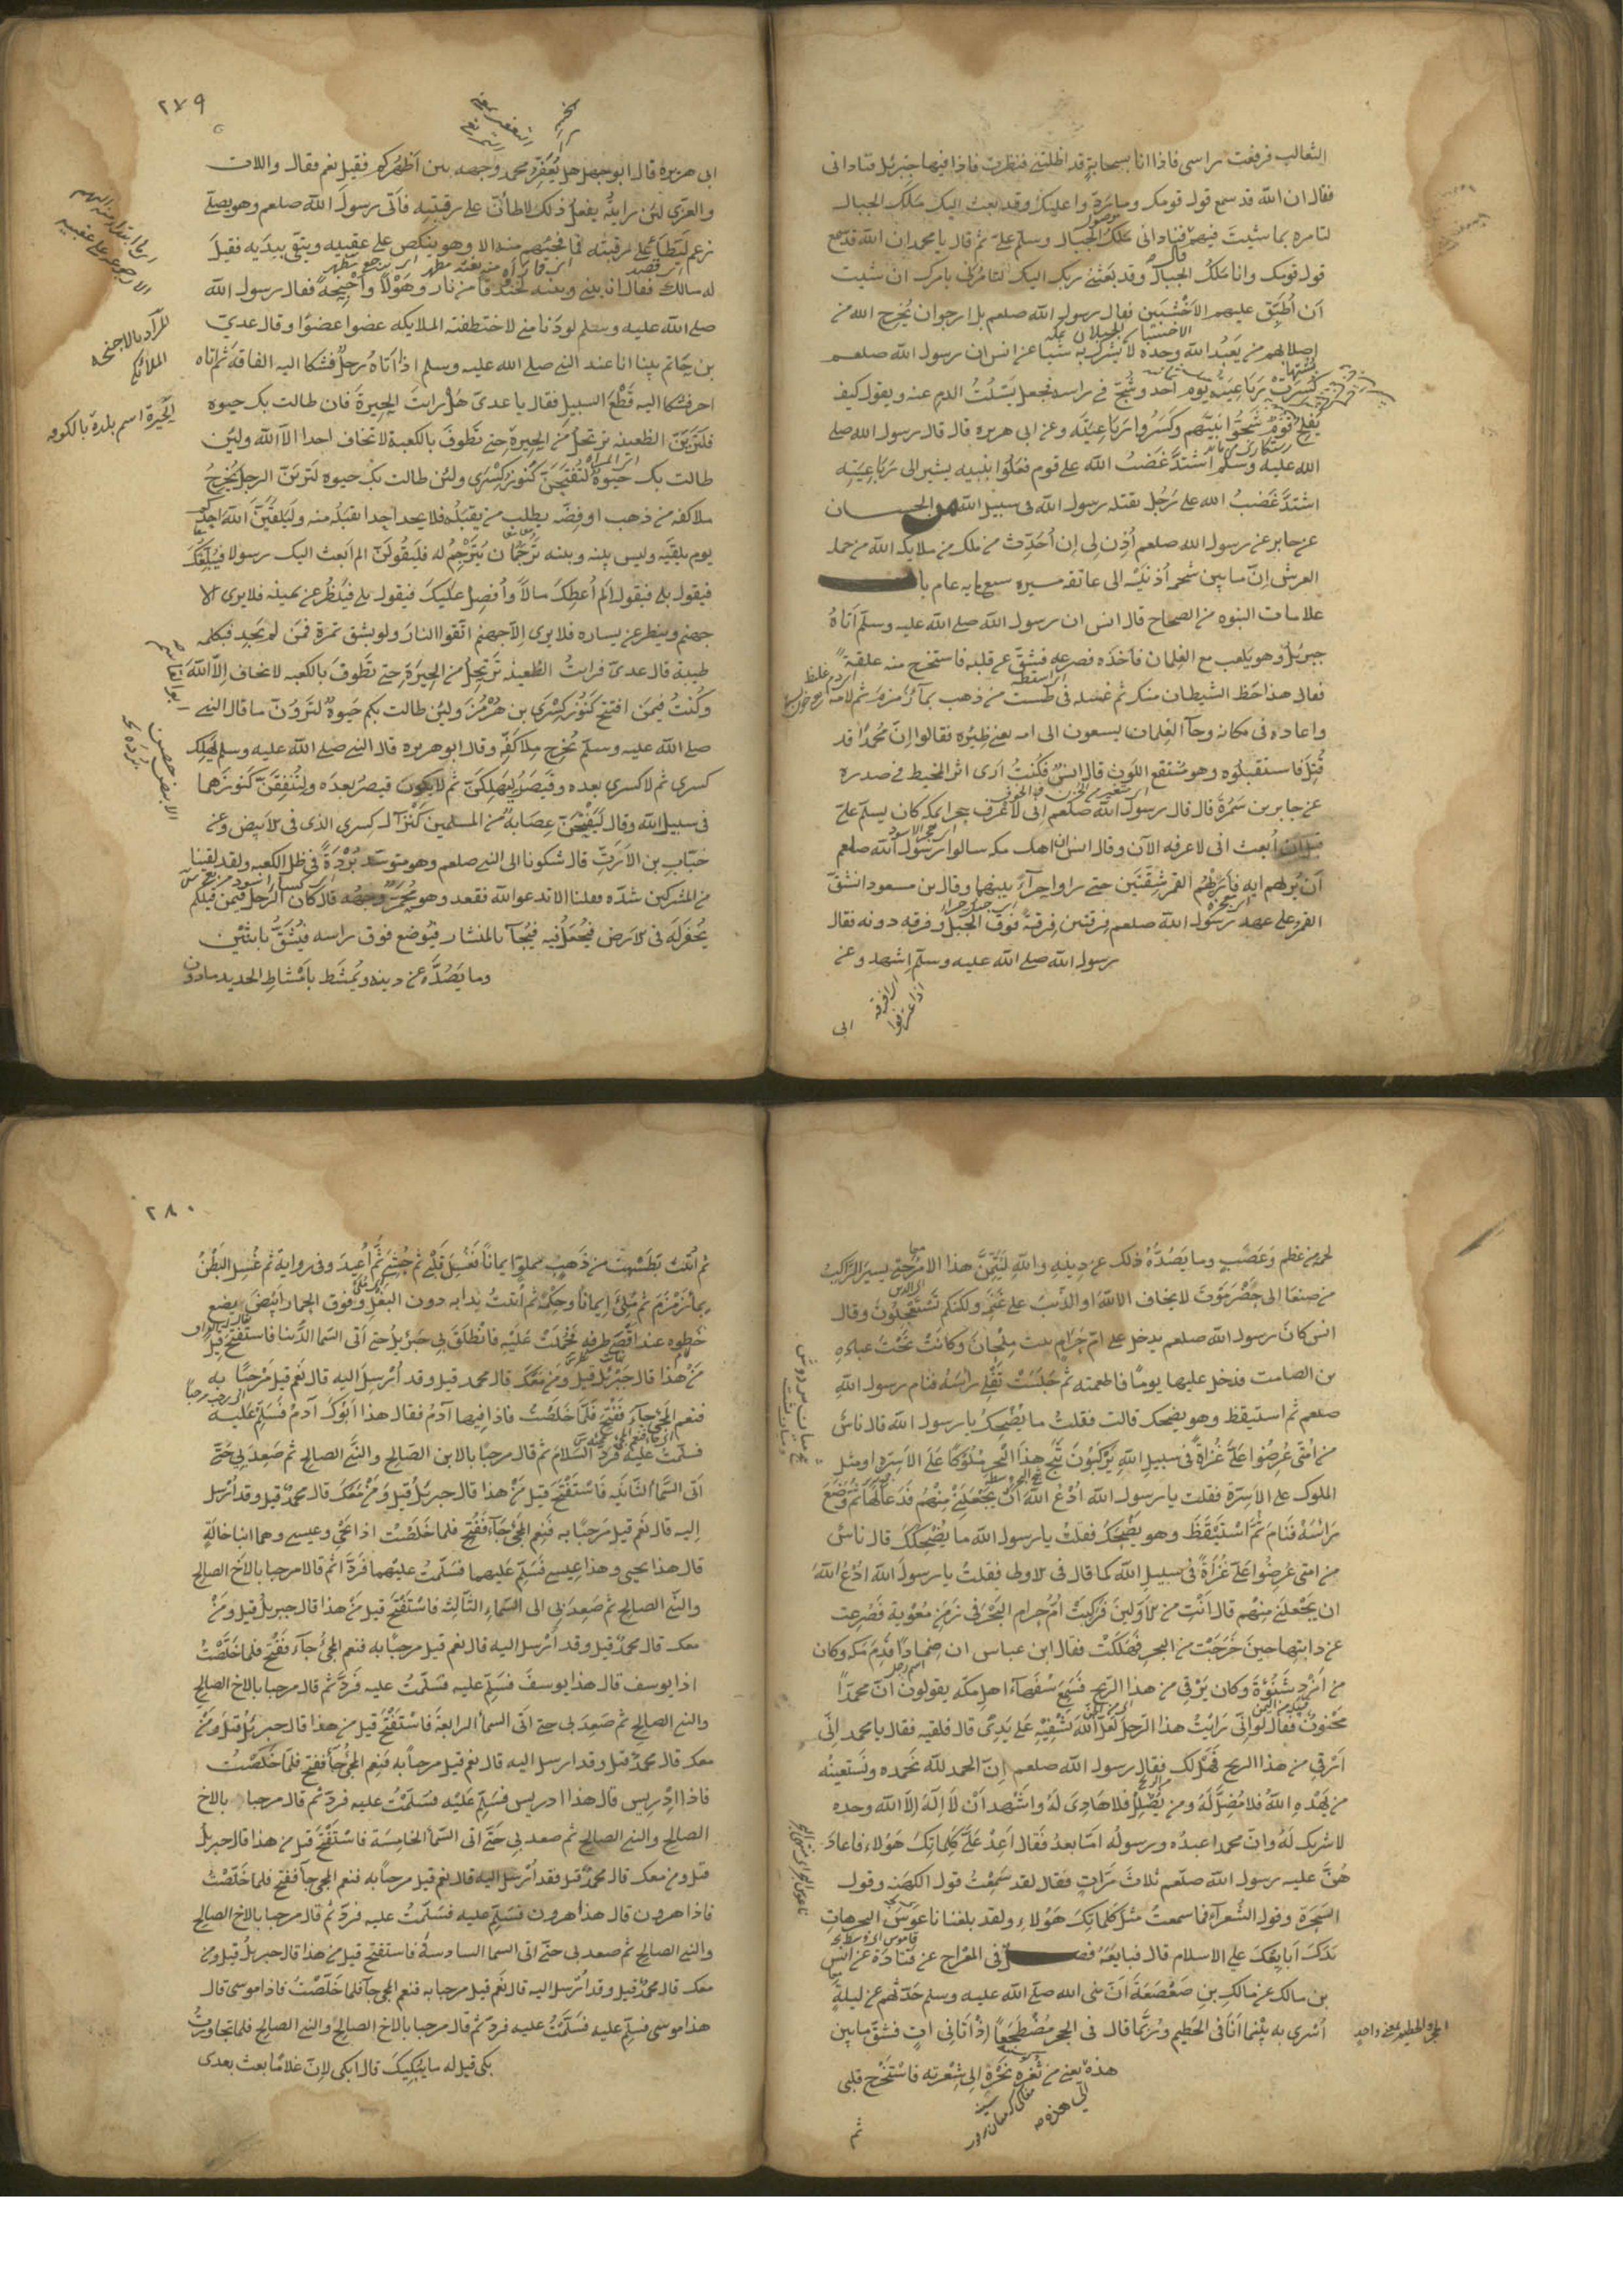 الثعالب فرفعت راسي فاذا انا بسحابةٍ قد اظلتني فنظرت فاذا فيها جبرئيل فناداني
فقال ان الله قد سمع قول قومك وما ردّوا عليك وقد بعث اليك ملك الجبال
لتامره بما شيت فيهم فناداني ملك الجبال وسلم عليّ ثم قال يا محمد ان الله قد سمع
قول قومك وانا ملك الجبال وقد بعثني ربك اليك لتامرني بامرك ان شيت
أن أُطبِق عليهم الاخشبين فقال رسول الله صلعم بل ارجو ان يُخرج الله من
اصلابهم من يعبُد الله وحده لا يشرك به شيًا عن انس ان رسول الله صلعم
كُسِرت رباعيته يوم احد وشُجّ في راسه فجعل يَسْلُتُ الدم عنه ويقول كيف
يُفلِحُ قومٌ شَجّوا نبيّهم وكسروا رباعيته وعن ابي هريره قال قال رسول الله صلى
الله عليه وسلم اشتدّ غضبُ الله على قوم فعلوا بنبيه يشير الى رباعِيَته
اشتدّ غضبُ الله على رجُل يقتله رسول الله في سبيل الله من الحسان
عن جابر عن رسول الله صلعم أُذِن لي ان أُحدّث عن ملك من ملايكة الله من حملة
العرش انّ ما بين شحمة أُذنيه الى عاتقه مسيرة سبع مايه عام باب
علامات النبوه من الصحاح قال انس ان رسول الله صلى الله عليه وسلم أتاهُ
جبرئيل وهو يلعب مع الغِلمان فأخذه فصرعه فشقّ عن قلبه فاستخرج منه علقة
فقال هذا حظ الشيطان منك ثم غسله في طست من ذهب بماء زمزم ثم لأمه
واعاده في مكانه وجآ الغِلمان يسعون الى امه يعني ظِئره فقالوا انّ محمدًا قد
قُتِل فاستقبلوه وهو منتقع اللون قال انس فكنتُ أرى اثر المخيط في صدره
عن جابر بن سمُرة قال قال رسول الله صلعم اني لأعرف حجرا بمكة كان يسلم عليّ
قبل ان أُبعث اني لاعرفه الآن وقال انس ان اهل مكه سالوا رسول الله صلعم
أن يُريَهم ايه فأراهُم القمر شِقّتين حتى راوا حِرآءَ بينهما وقال بن مسعود انشقّ
القمر على عهد رسول الله صلعم فرقتين فِرقةً فوق الجبل وفرقه دونه فقال
رسول الله صلى الله عليه وسلم اشهدوا وعن
ابي
٢٧٩
ابي هريره قال ابو جهل هل يُعفِّر محمد وجهه بين أظهُركم فقيل نعم فقال واللات
والعزّى لئن رايتُه يفعلُ ذلك لاطأنّ على رقبتِه فأتى رسولَ الله صلعم وهو يصلّي
زعم ليَطَأَ على رقبته فما فجِئهم منه الا وهو ينكص على عقبيه ويتّقي بيدَيه فقيل
له مالك فقال انّ بيني وبينه لخندقًا من نار وهَوْلًا وأجْنِحةً فقال رسول الله
صلى الله عليه وسلم لو دَنا مني لاختطفته الملايكه عضوا عضوًا وقال عديّ
بن حاتم بينا انا عند النبي صلى الله عليه وسلم اذ أتاه رجلٌ فشكا اليه الفاقةَ ثم اتاه
اخر فشكا اليه قطْعَ السبيل فقال يا عدي هل رايتَ الحِيرة فان طالت بك حيوه
فلتريَنّ الظعينه ترتحلُ من الحيرة حتى تطوف بالكعبة لا تخاف احدا الّا الله ولئن
طالت بك حيوةٌ لتُفتَحنّ كنوز كسرى ولئن طالت بك حيوه لترينّ الرجل يُخرِجُ
ملأ كفّه من ذهب او فضّه يطلب من يقبَلُه فلا يجد احدا يقبَلُه منه وليَلقيَنّ الله احدكم
يوم يلقَيه وليس بينه وبينه تَرجُمان يُترجِمُ له فليَقُولنّ الم ابعث اليك رسولا فيُبلّغك
فيقول بلى فيقول ألم أُعطِك مالًا وأُفضِل عليك فيقول بلى فينظُر عن يمينه فلا يرى الا
جهنم وينظر عن يساره فلا يرى الّا جهنم اتّقوا النار ولو بشق تمرة فمن لم يجد فبكلمه
طيبة قال عديّ فرايتُ الظعينه ترتحِلُ من الحيرة حتى تطوفَ بالكعبه لا تخاف الّا اللهَ
وكُنتُ فيمَن افتتح كنوز كسرى بن هُرمُز ولئن طالت بكم حيوةٌ لترونّ ما قال النبي
صلى الله عليه وسلم يُخرِج مِلأ كفّه وقال ابو هريره قال النبي صلى الله عليه وسلم يَهلِك
كسرى ثم لا كسرى بعده وقيصر ليَهلِكنّ ثم لا يكون قيصرُ بعدَه ولتُنفَقنّ كنوزهما
في سبيل الله وقال لتفتحنّ عِصابةٌ من المسلمين كنز آل كسرى الذي في الابيض وعن
خبّاب بن الأرتّ قال شكونا الى النبي صلعم وهو متوسّد بُرْدةً في ظل الكعبه ولقد لقينا
من المشركين شدّه فقلنا الا تدعوا الله فقعد وهو محمرّ وجهُه قال كان الرجل فيمن قبلكم
يُحفَر له في الارض فيُجعَل فيه فيُجآ بالمنشار فيوضع فوق راسه فيُشَقّ باثنين
وما يَصُدّه عن دينه ويُمشَط بأمشاطِ الحديد ما دون
المراد بالاجنحة
الملائكة
الحِيرة اسم بلدة بالكوفه
لحمه من عظم وعَصَبٍ وما يَصُدّه ذلك عن دِينه والله ليَتِمّنّ هذا الامر حتى يسير الرّاكبُ
من صنعا الى حضرموت لا يخاف الا اللهَ او الذئبَ على غنمِه ولكنكم تستعجلون وقال
انس كان رسول الله صلعم يدخل على امّ حَرام بنت مِلحان وكانت تحت عباده
بن الصامت فدخل عليها يومًا فاطعمته ثم جلست تفلي راسه فنام رسول الله
صلعم ثم استيقظ وهو يضحك قالت فقلتُ ما يُضحِكك يا رسول الله قال ناسٌ
من امتي عُرِضوا عليّ غُزاةً في سبيل الله يركبون ثبج هذا البحر ملوكًا على الأسِرّه او مثل
الملوك على الاسرّة فقلت يا رسول الله ادع الله ان يجعلني منهم فدعا لها ثم وضع
راسه فنام ثم استيقظ وهو يضحك فقلت يا رسول الله ما يُضحِكك قال ناسٌ
من امتي عُرِضوا عليّ غُزاةً في سبيل الله كما قال في الاولى فقلتُ يا رسول الله ادع الله
ان يجعلني منهم قال انتِ من الاولين فركِبتْ امّ حرام البحر في زمن معوية فصُرِعت
عن دابتها حين خرجت من البحر فهلكتْ فقال ابن عباس ان ضِمادا قدِم مكه وكان
من أزد شنُوءة وكان يَرقي من هذا الريح فسمع سفهآءَ اهل مكّه يقولون انّ محمدًا
مجنونٌ فقال لو انّي رايتُ هذا الرجل لعلّ الله يشفيه على يديّ قال فلقيه فقال يا محمد انّي
ارقي من هذا الريح فهل لك فقال رسول الله صلعم انّ الحمد لله نحمده ونستعينُه
من يهدِه اللهُ فلا مُضلّ له ومن يُضلِل فلا هاديَ له واشهد ان لا اله الا الله وحده
لا شريك له وانّ محمدا عبدُه ورسولُه امّا بعدُ فقال أعِد عليّ كلماتك هؤلاء فاعاد
هُنّ عليه رسول الله صلعم ثلاث مرّاتٍ فقال لقد سمعتُ قول الكهنه وقول
السحَرة وقول الشعرآء فما سمعتُ مثل كلماتك هؤلاء ولقد بلغنا ناعوس البحر هات
يدك أبايعك على الاسلام قال فبايَعَه فصل في المعراج عن قتادة عن انس
بن مالك عن مالك بن صعصعة أنّ نبي الله صلى الله عليه وسلم حدّثهم عن ليلةٍ
أُسري به بينما انا في الحَطيم وربّما قال في الحجر مضطجعًا اذ أتاني آتٍ فشقّ ما بين
هذه يعني من ثُغره نحره الى شِعرته فاستخرج قلبي
ثم
الحجر والحطيم بمعنى واحدٍ
٢٨٠
ثم أُتيتُ بطَسْتٍ من ذهبٍ مملوٍّا ايمانًا فغُسِل قلبي ثم حُشي ثم أُعيد وفي رواية ثم غُسِل البطنُ
بماء زمزم ثم مُلئ ايمانًا وحكمةً ثم أُتيتُ بدابه دون البغل وفوق الحمار ابيضَ يضع
خطوه عند اقصى طرفه فحُمِلتُ عليه فانطلق بي جبرئيلُ حتى أتى السّما الدّنيا فاستفتح قيل
من هذا قال جبرئيل قيل ومن معك قال محمد قيل وقد أُرسِل اليه قال نعم قيل مرحبًا به
فنعم المجيُ جآءَ ففُتح فلمّا خلصتُ فاذا فيها آدمُ فقال هذا ابوك آدمُ فسلِّم عليه
فسلّمت عليه فردّ السلام ثم قال مرحبًا بالابن الصالح والنبي الصالح ثم صعِد بي حتّى
أتى السّمآ الثانيه فاستفتح قيل من هذا قال جبرئيلُ قيل ومن معك قال محمدٌ قيل وقد أُرسل
إليه قال نعم قيل مرحبًا به فنعم المجيُ جآءَ ففُتح فلما خلصت اذا يحيى وعيسى وهما ابنا خالةٍ
قال هذا يحيى وهذا عيسى فسلِّم عليهما فسلّمتُ عليهما فردّا ثم قالا مرحبا بالاخ الصالح
والنبي الصالح ثم صعِد بي الى السّماء الثّالثه فاستفتح قيل من هذا قال جبريل قيل ومن
معك قال محمدٌ قيل وقد أُرسِل اليه قال نعم قيل مرحبًا به فنعم المجيُ جآءَ ففُتح فلما خلصتُ
اذا يوسف قال هذا يوسف فسلِّم عليه فسلّمتُ عليه فردّ ثم قال مرحبا بالاخ الصالح
والنبي الصالح ثم صعِد بي حتى اتى السمآ الرابعة فاستفتح قيل من هذا قال جبرئيلُ قيل ومن
معك قال محمدٌ قيل وقد ارسل اليه قال نعم قيل مرحباً به فنعم المجيُ جآ ففتح فلما خلصتُ
فاذا ادريس قال هذا ادريس فسلِّم عليه فسلّمت عليه فردّ ثم قال مرحبا بالاخ
الصالح والنبي الصالح ثم صعد بي حتّى اتى السّمآ الخامسة فاستفتح قيل من هذا قال جبريل
قيل ومن معك قال محمدٌ قيل فقد أُرسِل اليه قال نعم قيل مرحباً به فنعم المجي جآ ففتح فلما خلصتُ
فاذا هرون قال هذا هرون فسلِّم عليه فسلّمتُ عليه فردّ ثم قال مرحبا بالاخ الصالح
والنبي الصالح ثم صعد بي حتّى اتى السما السادسة فاستفتح قيل من هذا قال جبريلُ قيل ومن
معك قال محمدٌ قيل وقد أُرسل اليه قال نعم قيل مرحبا به فنعم المجي جآ فلما خلصتُ فاذا موسى قال
هذا موسى فسلِّم عليه فسلّمتُ عليه فردّ ثم قال مرحبا بالاخ الصالح والنبي الصالح فلما تجاوزتُ
بكى قيل له ما يُبكيك قال ابكي لانّ غلامًا بعث بعدى